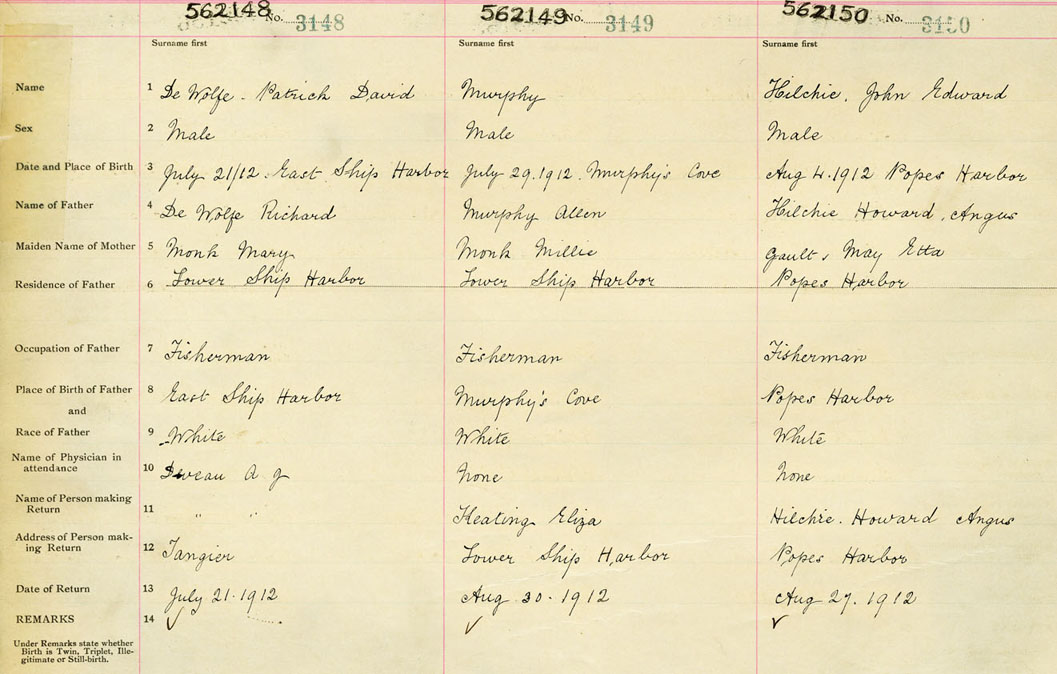 562148 No. 3148 562149 No. 3149 562150 No. 3150
Surname first Surname first Surname first
Name 1 De Wolfe - Patrick David Murphy Hilchie, John Edward
Sex 2 Male Male Male
Date and Place of Birth 3 July 21/12. East Ship Harbor July 29.1912. Murphy's Cove Aug 4.1912 Popes Harbor
Name of Father 4 De Wolfe Richard Murphy Allen Hilchie Howard, Angus
Maiden Name of Mother 5 Monk Mary Monk Millie Gault, May Etta
Residence of Father 6 Lower Ship Harbor Lower Ship Harbor Popes Harbor
Occupation of Father 7 Fisherman Fisherman Fisherman
Place of Birth of Father 8 East Ship Harbor Murphy's Cove Popes Harbor
and
Race of Father 9 White White White
Name of Physician in
attendance 10 A J None None
Name of Person making
Return 11 " " Keating Eliza Hilchie. Howard Angus
Address of Person mak-
ing Return 12 Tangier Lower Ship Harbor Popes Harbor
Date of Return 13 July 21.1912 Aug 30.1912 Aug 27.1912
REMARKS 14 ✓ ✓ ✓
Under Remarks state whether
Birth is Twin, Triplet, Ille-
gitimate or Still-birth.